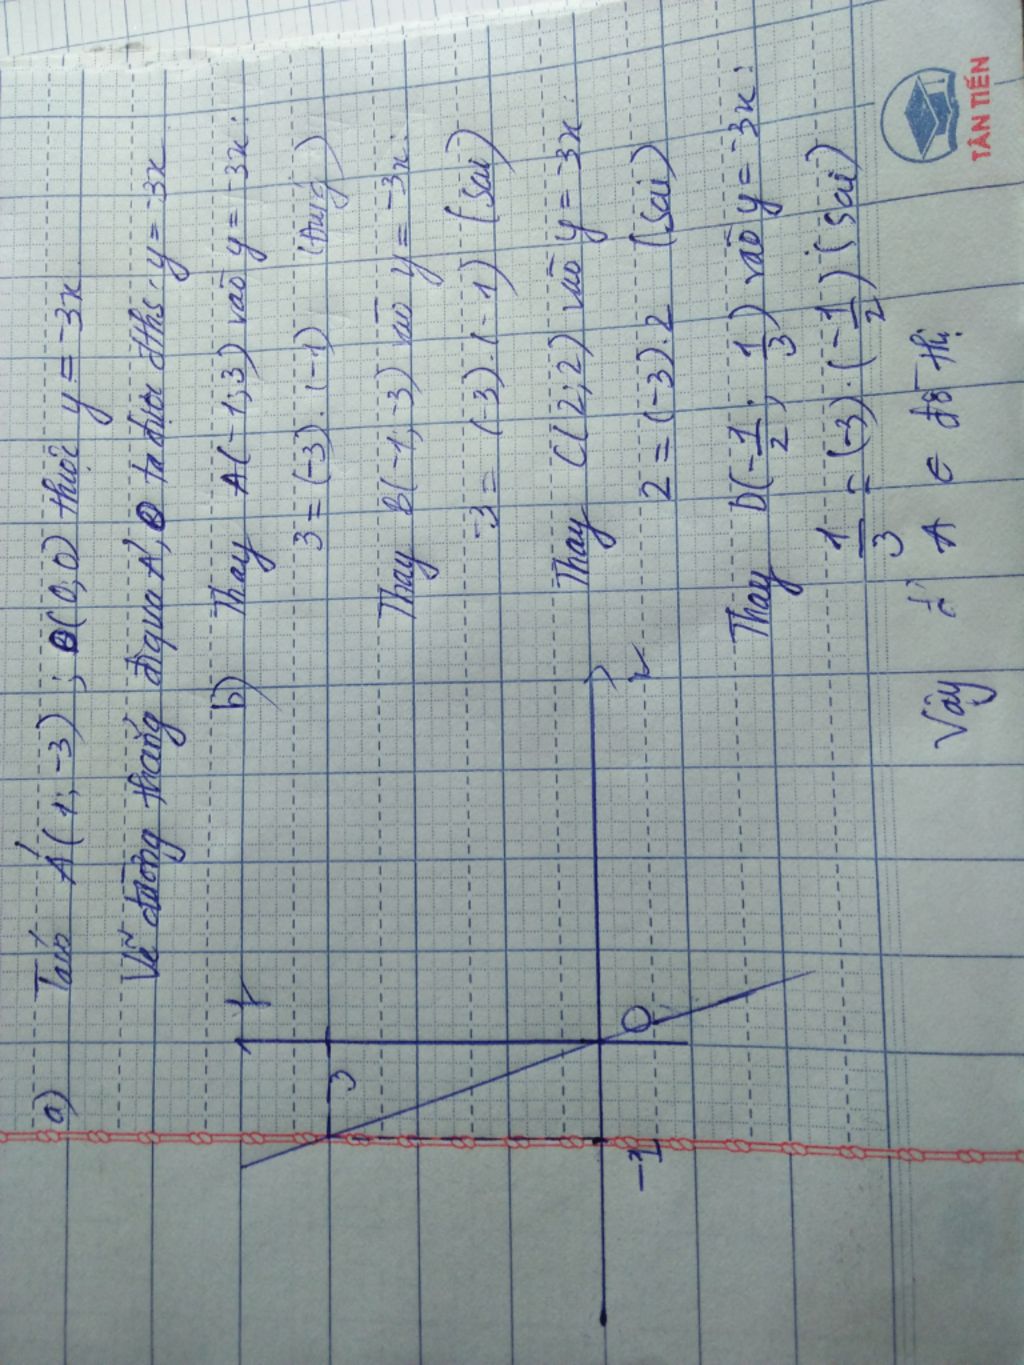 a) Thấy A'(1; -3) ; O(0; 0) thuộc y = -3x
Vẽ đường thẳng đi qua A', O ta được đths y = -3x
y
3
-1
O
x
b) Thay A(-1; 3) vào y = -3x:
3 = (-3).(-1) (đúng)
Thay B(-1; -3) vào y = -3x:
-3 = (-3).(-1) (sai)
Thay C(2; 2) vào y = -3x:
2 = (-3).2 (sai)
Thay D(-1/2; 1/3) vào y = -3x:
1/3 = (-3).(-1/2) (sai)
Vậy A ∈ đồ thị
TÂN TIẾN